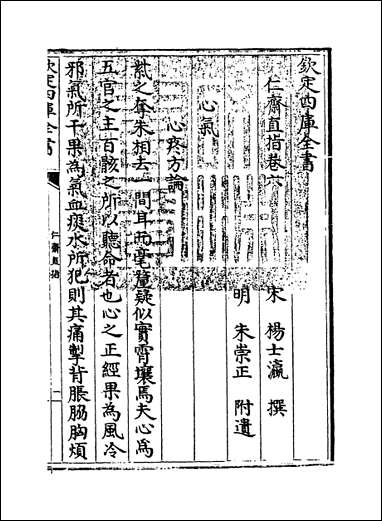 欽定四庫全書
仁齋直指卷六
宋 楊士瀛 撰
明 朱崇正 附遺
心氣
心疼方論
紫之奪朱相去一間耳而毫釐疑似實霄壤焉夫心為
五官之主百骸之所以聽命者也心之正經果為風冷
邪氣所干果為氣血痰水所犯則其痛掣背脹脇胸煩
欽定四庫全書
仁齋直指